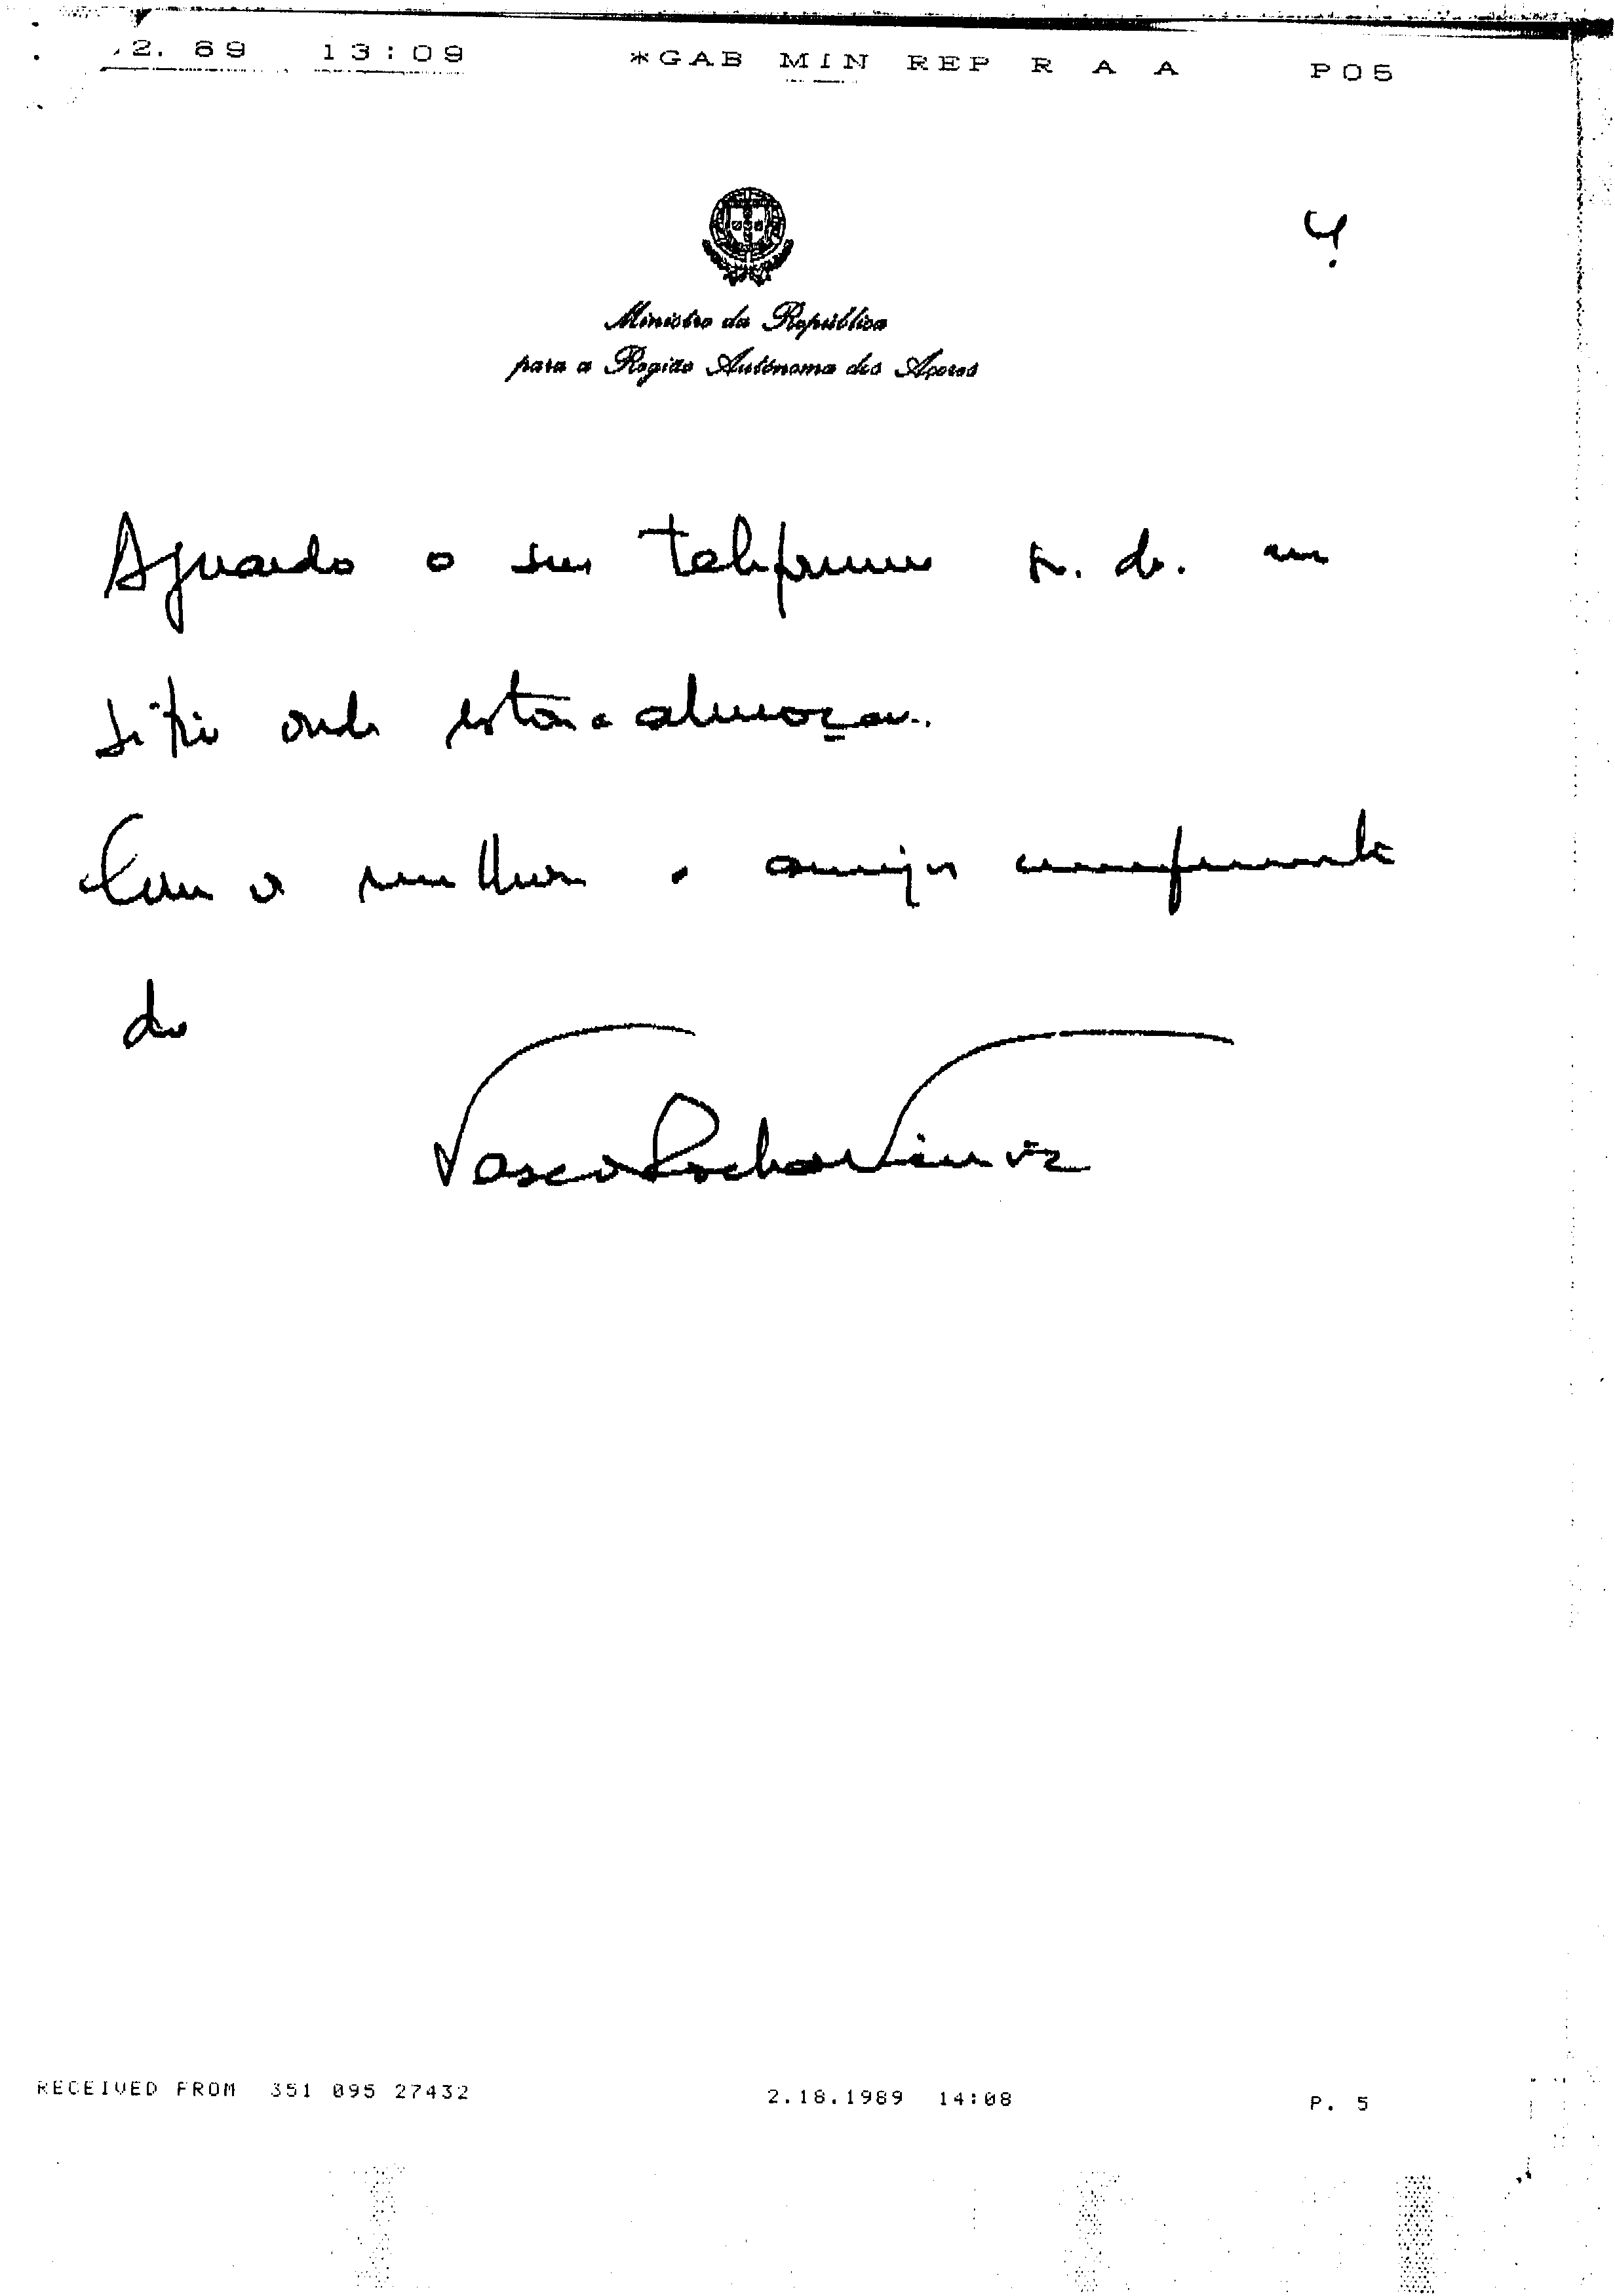 .2. 89 13:09 *GAB MIN REP R A A P05
4.
Ministro da República
para a Região Autónoma dos Açores
Aguardo o seu telefonema no
sítio onde estou a almoçar.
Com o melhor e amigo cumprimento
do
Vasco Rocha Vieira
RECEIVED FROM 351 095 27432 2.18.1989 14:08 P. 5